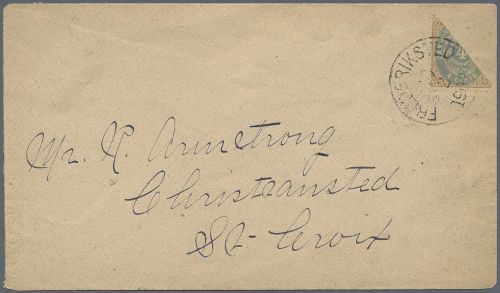 FREDERIKSTED
Mr. N. Armstrong
Christiansted
St- Croix